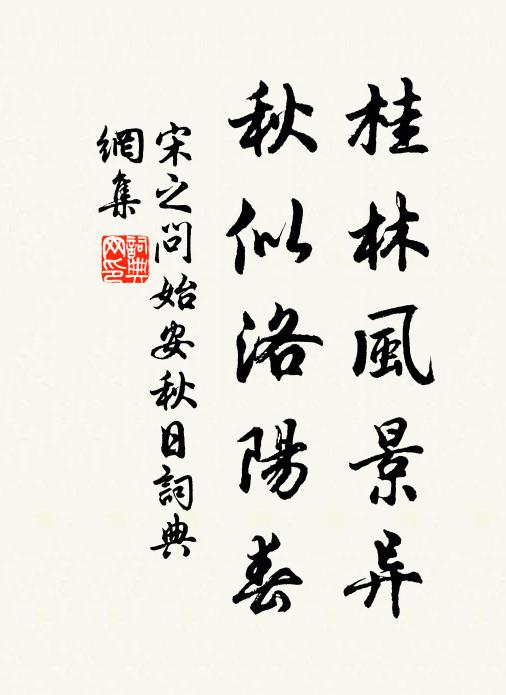 桂林風景异
秋似洛陽春
宋之问始安秋日詞典
網集
詞典
网印